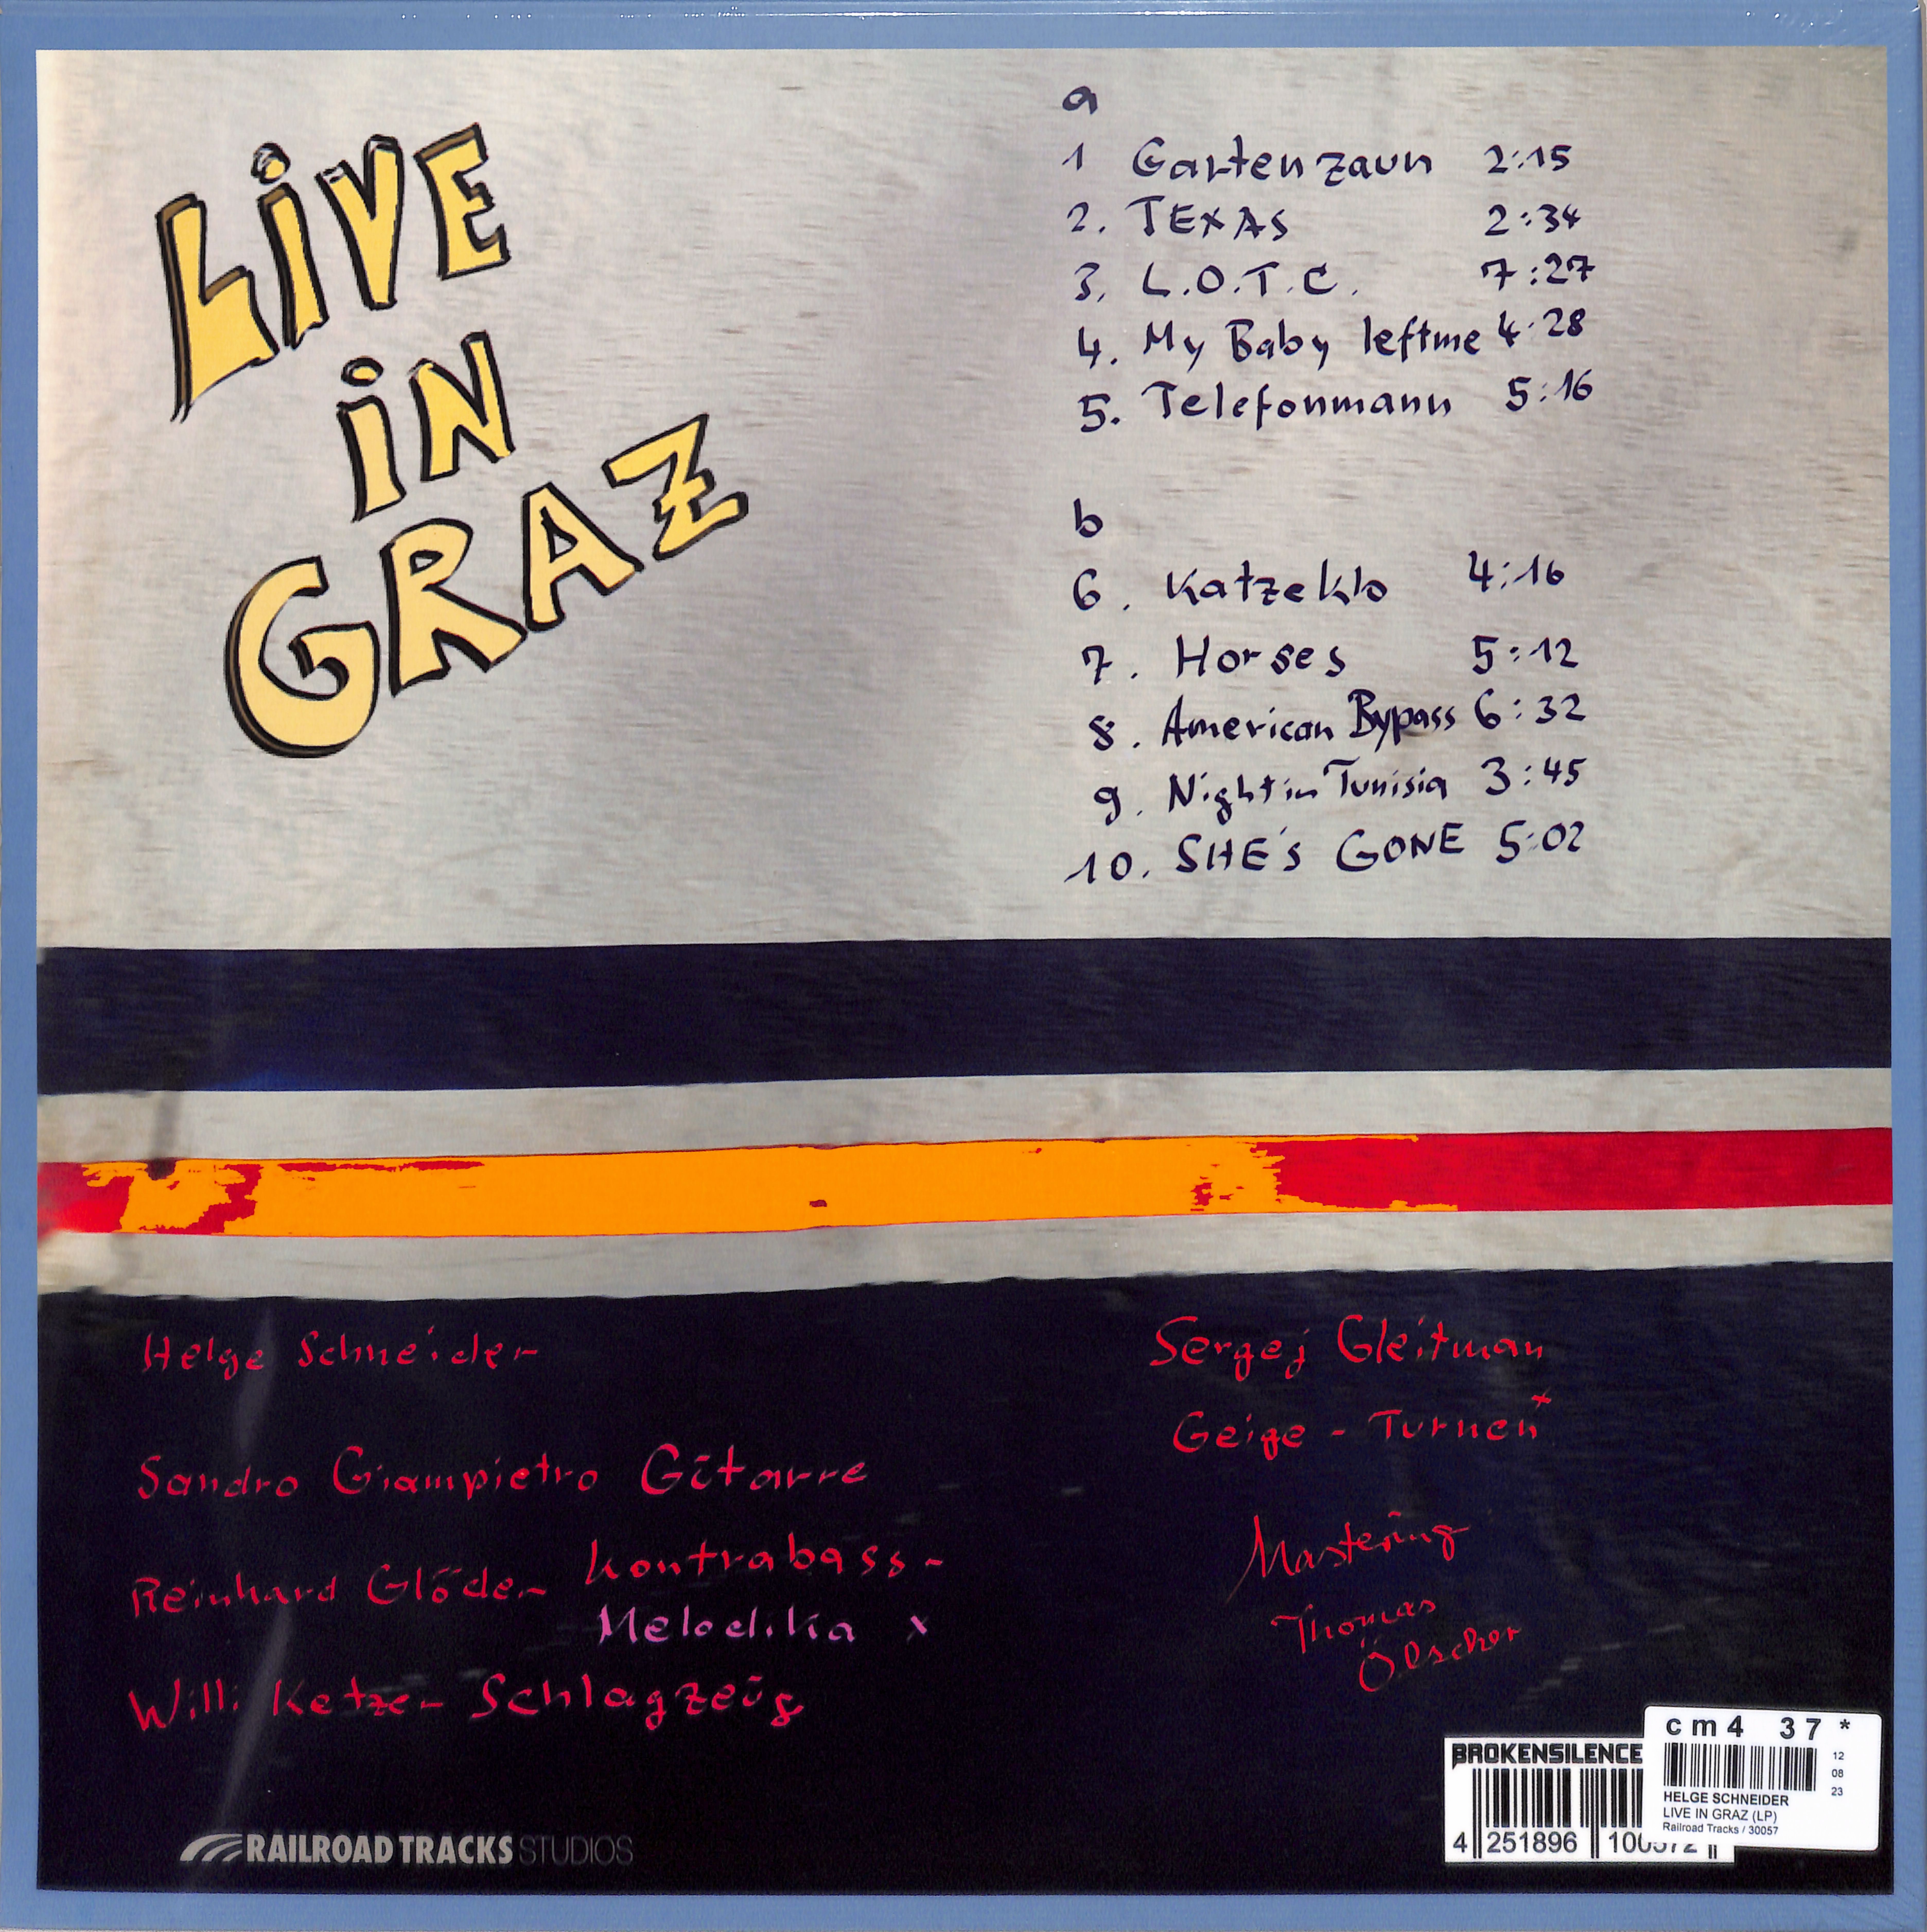 LiVE
iN
GRAZ
a
1 Gartenzaun 2:15
2. TEXAS 2:34
3. L.O.T.C. 7:27
4. My Baby leftme 4:28
5. Telefonmann 5:16
b
6. Katzeklo 4:16
7. Horses 5:12
8. American Bypass 6:32
9. Night in Tunisia 3:45
10. SHE'S GONE 5:02
Helge Schneider
Sandro Giampietro Gitarre
Reinhard Glöder Kontrabass-
Melodika x
Willi Ketzer Schlagzeug
Sergej Gleitman
Geige - Turnen x
Mastering
Thomas
Ölscher
RAILROAD TRACKS STUDIOS
BROKENSILENCE
4 251896
cm4 37 *
12
08
23
HELGE SCHNEIDER
LIVE IN GRAZ (LP)
Railroad Tracks / 30057